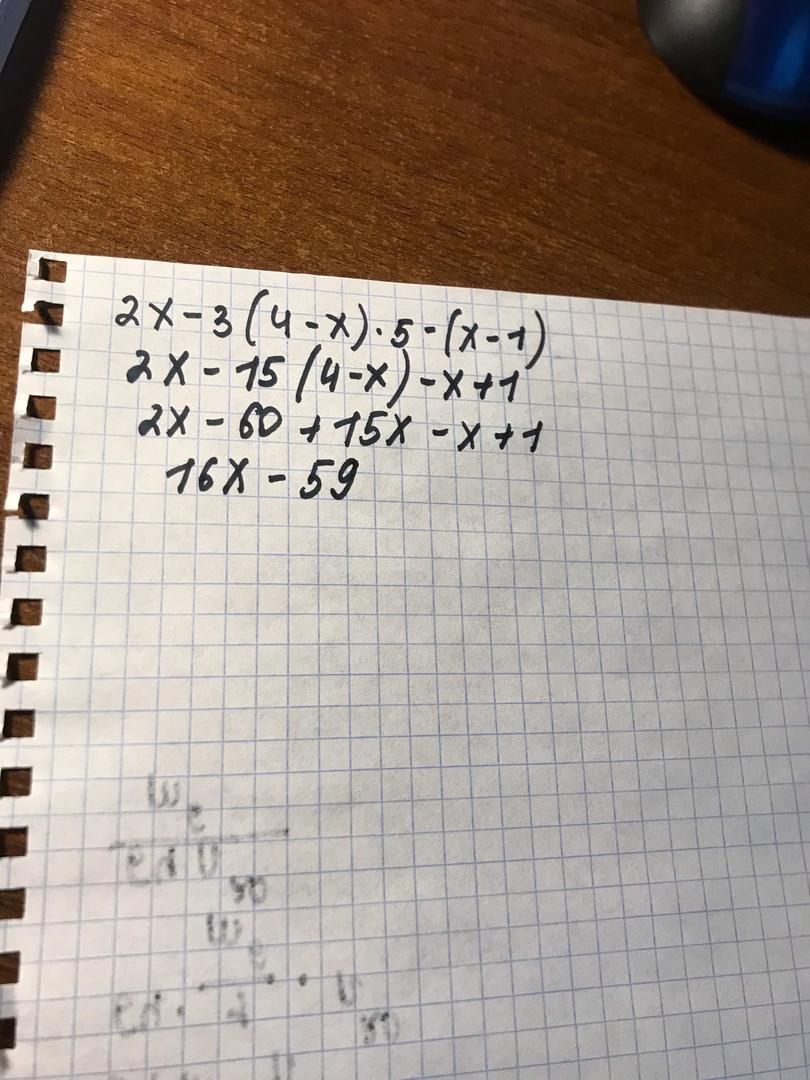 2x - 3(4 - x) · 5 - (x - 1)
2x - 15(4 - x) - x + 1
2x - 60 + 15x - x + 1
16x - 59